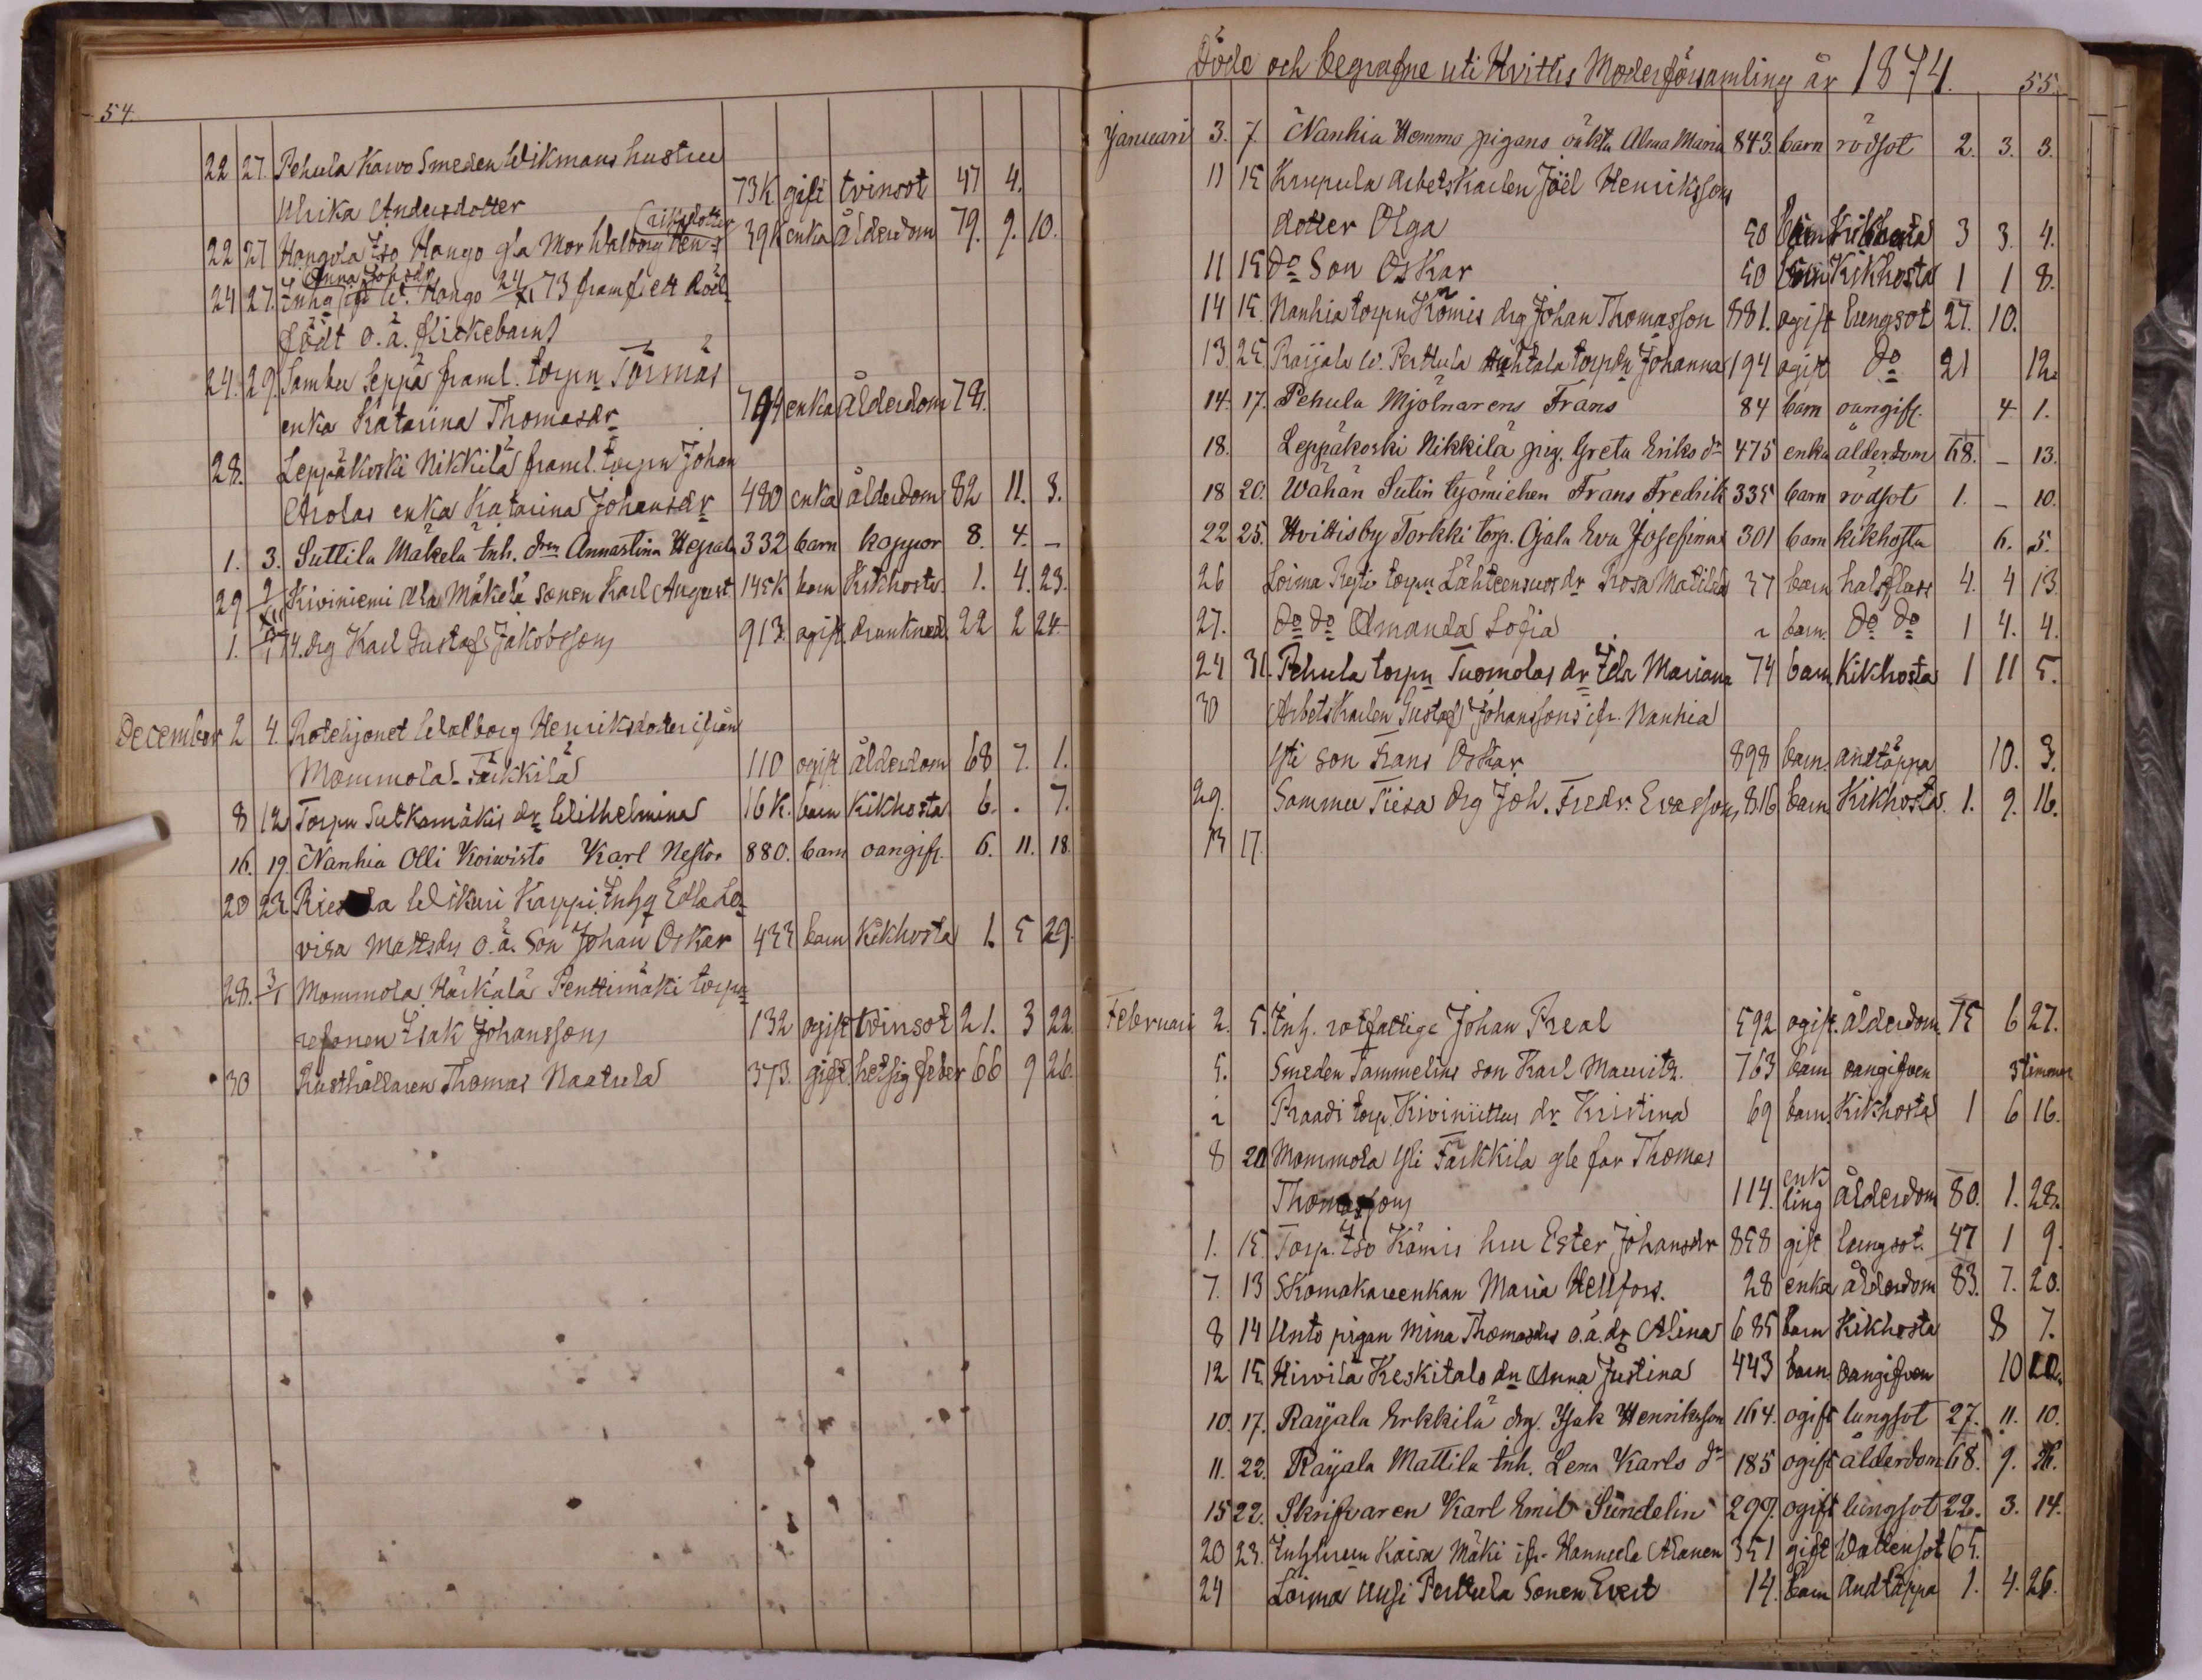 54.
22 27. Pehula Kawo Smeden Wikmans hustru
Ulrika Andersdotter 73K gift tvinsot 47 4.
riksdotter
22 27 Hangola Iso Hango gla Mor Walborg Hen- 39K enka ålderdom 79. 9. 10.
Anna Johsdr
24 27. Inhg W. Hango 24/XI 73 framf. ett död-
födt o.ä. flickebarn
24. 29. Samku Seppä framl. torpn Törmäs
enka Katarina Thomasdr 794 enka ålderdom 78.
28. Leppäkoski Nikkilä framl. torpn Johan
Arolas enka Katarina Johansdr 480 enka ålderdom 82 11. 3.
1. 3. Suttila Mäkelä Inh. drn Annastina Hegrala 332 barn koppor 8. 4. –
29 2/XII Kiviniemi Ala Mäkelä sonen Karl August 145K barn Kikhosta 1. 4. 23.
1. 74. drg Karl Gustaf Jakobsson 913. ogift drunknad 22 2 24
December 2 4. Rotehjonet Walborg Henriksdotter ifrån
Mommola Tärkkilä 110 ogift ålderdom 68 7. 1.
8 12 Torpn Sulkamäkis dr Wilhelmina 16K. barn Kikhosta 6. . 7.
16. 19. Nanhia Olli Koiwisto Karl Nestor 880. barn oangif. 6. 11. 18.
20 23 Wikuri Karppi Inhg Edla Lo-
visa Mattsdrs o.ä. Son Johan Oskar 433 barn Kikhosta 1. 5 29.
28. 3/1 Mommola Härkälä Penttimäki torpa-
resonen Isak Johansson 132 ogift tvinsot 21. 3 22.
30 Rusthållaren Thomas Naatula 373. gift hetsig feber 66 9 26.
Döde och begrafne uti Hvittis Moderförsamling år 1874. 55.
Januari 3. 7. Nanhia Hemmo pigans oäkta Alma Maria 843 barn rödsot 2. 3. 3.
11 15 Karpula arbetskarlen Joël Henrikssons
dotter Olga 50 barn Kikhosta 3 3. 4.
11 15 Do Son Oskar 50 barn Kikhosta 1 1 8.
14 15. Nanhia torpn Kömis drg Johan Thomasson 881. ogift lungsot 27. 10.
13 25. Raijala W. Perttula Huhtala torpdn Johanna 194 ogift Do 21 12.
14. 17. Pehula Mjölnarens Frans 84 barn oangif. 4. 1.
18. Leppäkoski Nikkilä pig. Greta Eriks dr 475 enka ålderdom 68. – 13.
18 20. Wähän Sutin työmiehen Frans Fredrik 335 barn rödsot 1. – 10.
22 25. Hvittisby Torkki torp. Ojala Eva Josefina 301 barn kikhosta 6. 5.
26 Loima torpn Lähteensuos dr Rosa Matilda 37 barn halsfluss 4. 4 13.
27. Do Do Amanda Sofia barn. Do Do 1 4. 4.
24 31. Pehula torpn Tuomolas dr Ida Mariana 74 barn Kikhosta 1 11 5.
30 Arbetskarlen Gustaf Johanssons ifr. Nanhia
Yli son Frans Oskar 898 barn. andtäppa 10. 3.
29. Sammu Tiisa drg Joh. Fredr. Evasson 816 barn Kikhosta 1. 9. 16.
13 17.
Februari 2. 5. Inh. rotfattige Johan Preal 592 ogift. ålderdom. 75 6 27.
5. Smeden Tammelins son Karl Mauritz. 763 barn oangifven 3 timmar
Praadi torp. Kiviniittus dr Kristina 69 barn. Kikhosta 1 6 16.
8 20 Mommola Yli Tärkkilä gle far Thomas
Thomasson 114. enkling ålderdom 80. 1. 28.
1. 15. Torp. Iso Kämis hru Ester Johansdr 858 gift lungsot. 47 1 9.
7. 13 Skomakareenkan Maria Hellfors. 28 enka ålderdom 83. 7. 20.
8 14 Unto pigan Mina Thomasdrs o.ä. dr Alina 685 barn Kikhosta 8 7.
12 15. Hirvilä Keskitalo dn Anna Justina 443 barn oangifven 10 20.
10. 17. Raijala Erkkilä drg. Isak Henriksson 164. ogift lungsot 27. 11. 10.
11. 22. Raijala Mattila Inh. Lena Karls dr 185 ogift ålderdom 68. 9. 26.
15 22. Skrifvaren Karl Emil Sundelin 299. ogift lungsot 22. 3. 14.
20 23. Inhhrun Kaisa Mäki ifr. Hannula Alanen 351 gift Wattensot 65.
24 Loima Uusi Perttula Sonen Evert 14. barn andtäppa 1. 4. 26.